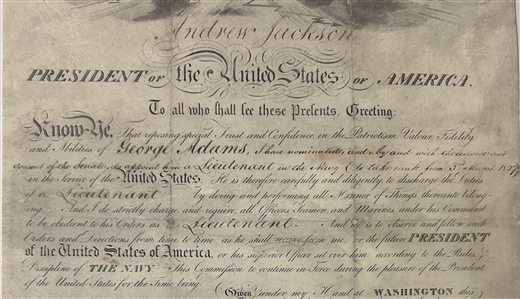 Andrew Jackson
PRESIDENT OF the United States OF AMERICA.
To all who shall see these Presents, Greeting:
Know Ye, That reposing special Trust and Confidence in the Patriotism, Valour, Fidelity
and Abilities of George Adams, I have nominated, and by and with the advice and
consent of the Senate, do appoint him a Lieutenant in the Navy to take rank from 3d March
in the Service of the United States. He is therefore carefully and diligently to discharge the duties
of a Lieutenant by doing and performing all Manner of Things thereunto belong-
ing. And I do strictly charge and require all Officers, Seamen and Marines, under his Command
to be obedient to his Orders as a Lieutenant. And he is to observe and follow such
Orders and Directions from time to time as he shall receive from me, or the future PRESIDENT
of the United States of America, or his superior Officer set over him, according to the Rules &
Discipline of THE NAVY. This Commission to continue in Force during the pleasure of the President
of the United States for the Time being.
Given under my Hand at WASHINGTON this